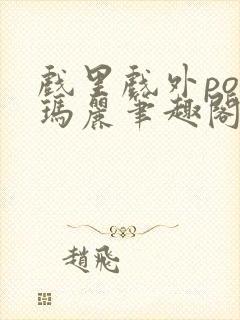 戲里戲外po
瑪麗筆趣閣
趙飛